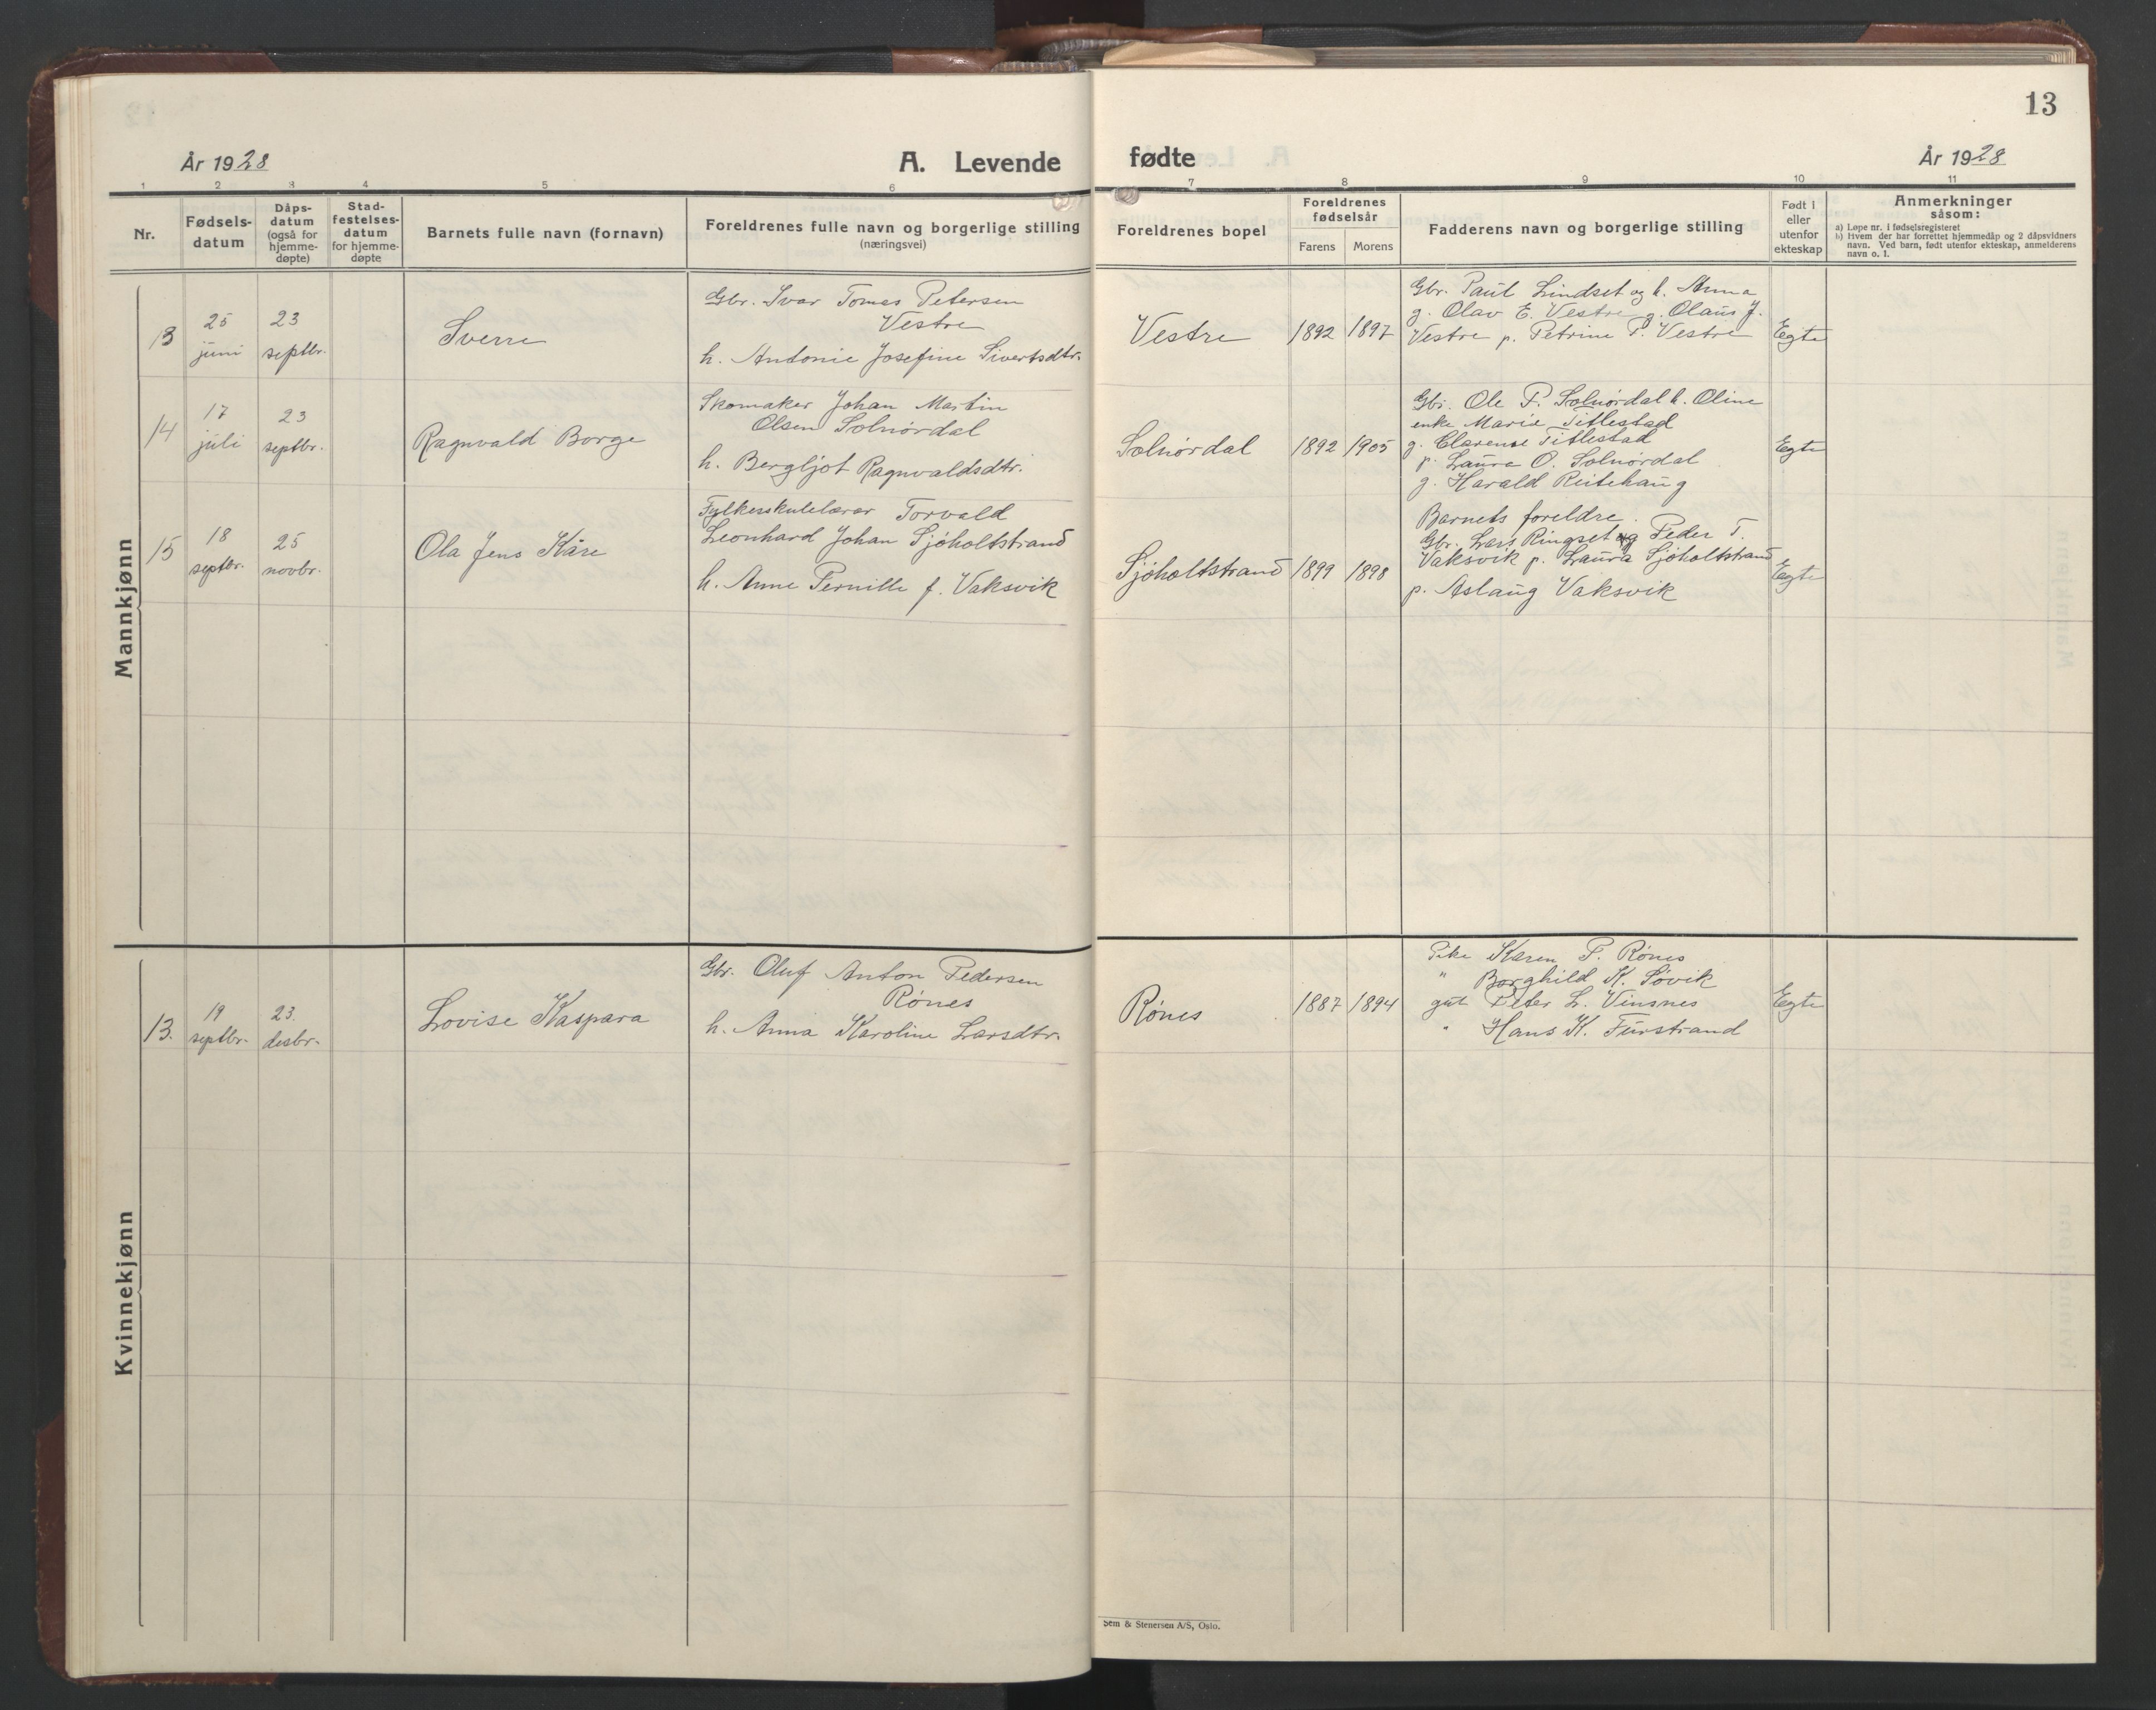 13
År 1928
A. Levende fødte
År 1928
1 2 3 4 5 6 7 8 9 10 11
Nr.
Fødsels-
datum
Dåps-
datum
(også for
hjemme-
døpte)
Stad-
festelses-
datum
for hjemme-
døpte
Barnets fulle navn (fornavn)
Foreldrenes fulle navn og borgerlige stilling
(næringsvei)
Foreldrenes bopel
Foreldrenes
fødselsår
Farens Morens
Fadderens navn og borgerlige stilling
Født i
eller
utenfor
ekteskap
Anmerkninger
såsom:
a) Løpe nr. i fødselsregisteret
b) Hvem der har forrettet hjemmedåp og 2 dåpsvidners
navn. Ved barn, født utenfor ekteskap, anmelderens
navn o. l.
Mannkjønn
13
25
juni
23
septbr.
Sverre
Gbr. Ivar Tomas Petersen
Vestre
h. Antonie Josefine Sivertsdtr.
Vestre
1892 1897
Gbr. Paul Lindset og h. Anna
g. Olav E. Vestre g. Olaus J.
Vestre p. Petrine P. Vestre
Egte
14
17
juli
23
septbr.
Ragnvald Borge
Skomaker Johan Martin
Olsen Solnørdal
h. Bergljot Ragnvaldsdtr.
Solnørdal
1892 1905
Gbr. Ole P. Solnørdal h. Oline
enke Marie Titlestad
g. Clarense Titlestad
p. Laura O. Solnørdal
g. Harald Reitehaug
Egte
15
18
septbr.
25
novbr.
Ola Jens Kåre
Fylkesskulelærer Torvald
Leonhard Johan Sjøholtstrand
h. Anne Pernille f. Vaksvik
Sjøholtstrand
1899 1898
Barnets foreldre.
Gbr. Lars Ringset og Peder T.
Vaksvik p. Laura Sjøholtstrand
p. Aslaug Vaksvik
Egte
Kvinnekjønn
13.
19
septbr.
23.
desbr.
Lovise Kaspara
Gbr. Oluf Anton Pedersen
Rønes
h. Anna Karoline Larsdtr.
Rønes
1887 1894
Pike Karen P. Rønes
" Borghild K. Søvik
gut Peter L. Vinsnes
" Hans K. Furstrand
Egte
Sem & Stenersen A/S, Oslo.